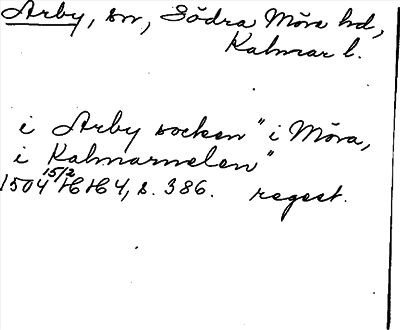 Arby, sn, Södra Möre hd,
Kalmar l.
i Arby socken "i Möre,
i Kalmarnelen"
1504 15/2 HH 4, s. 386. regest.